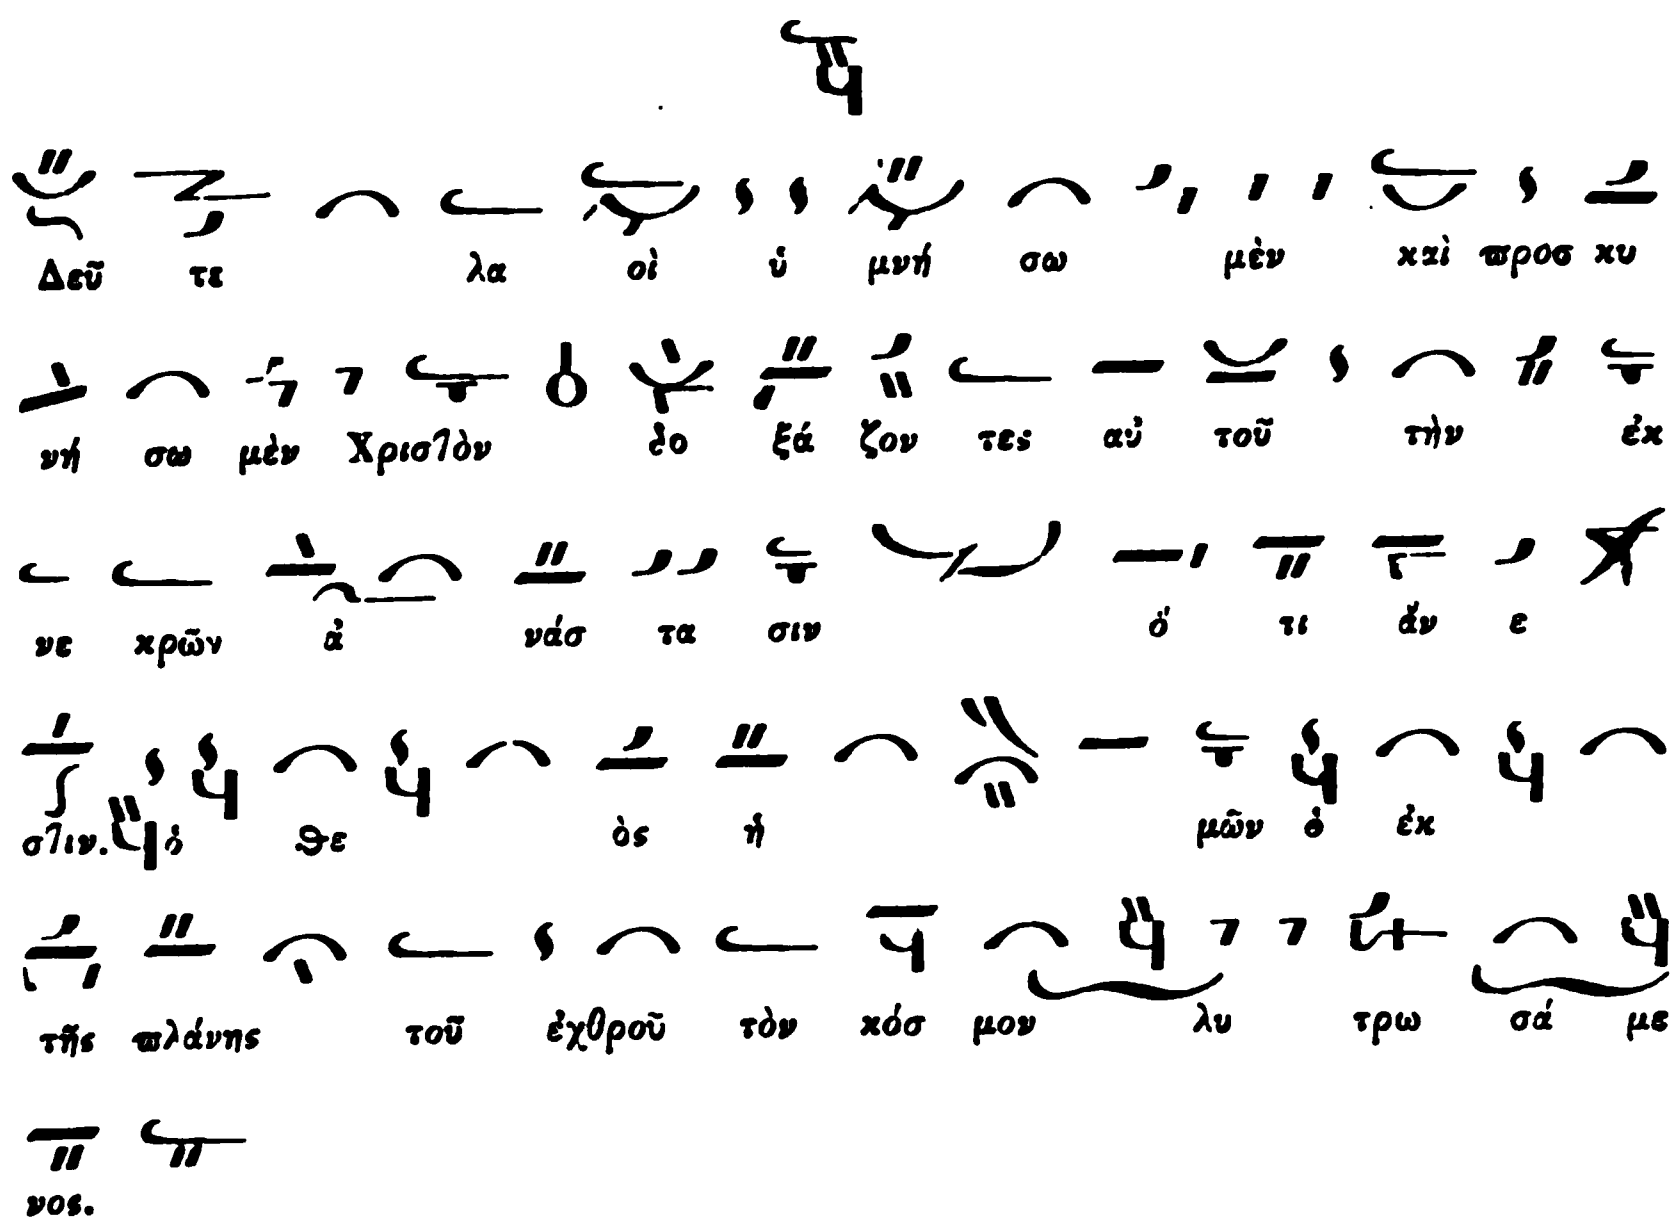 Δεῦ τε λα οὶ ὑ μνή σω μὲν καὶ ϖροσ κυ
νή σω μὲν Χρισ7ὸν δο ξά ζον τες αὐ τοῦ τὴν ἐκ
νε κρῶν ἀ νάσ τα σιν ὅ τι ἄν ε
σ7ιν. ὁ θε ὸς ἡ μῶν ὁ ἐκ
τῆς ϖλάνης τοῦ ἐχθροῦ τὸν κόσ μον λυ τρω σά με
νος.